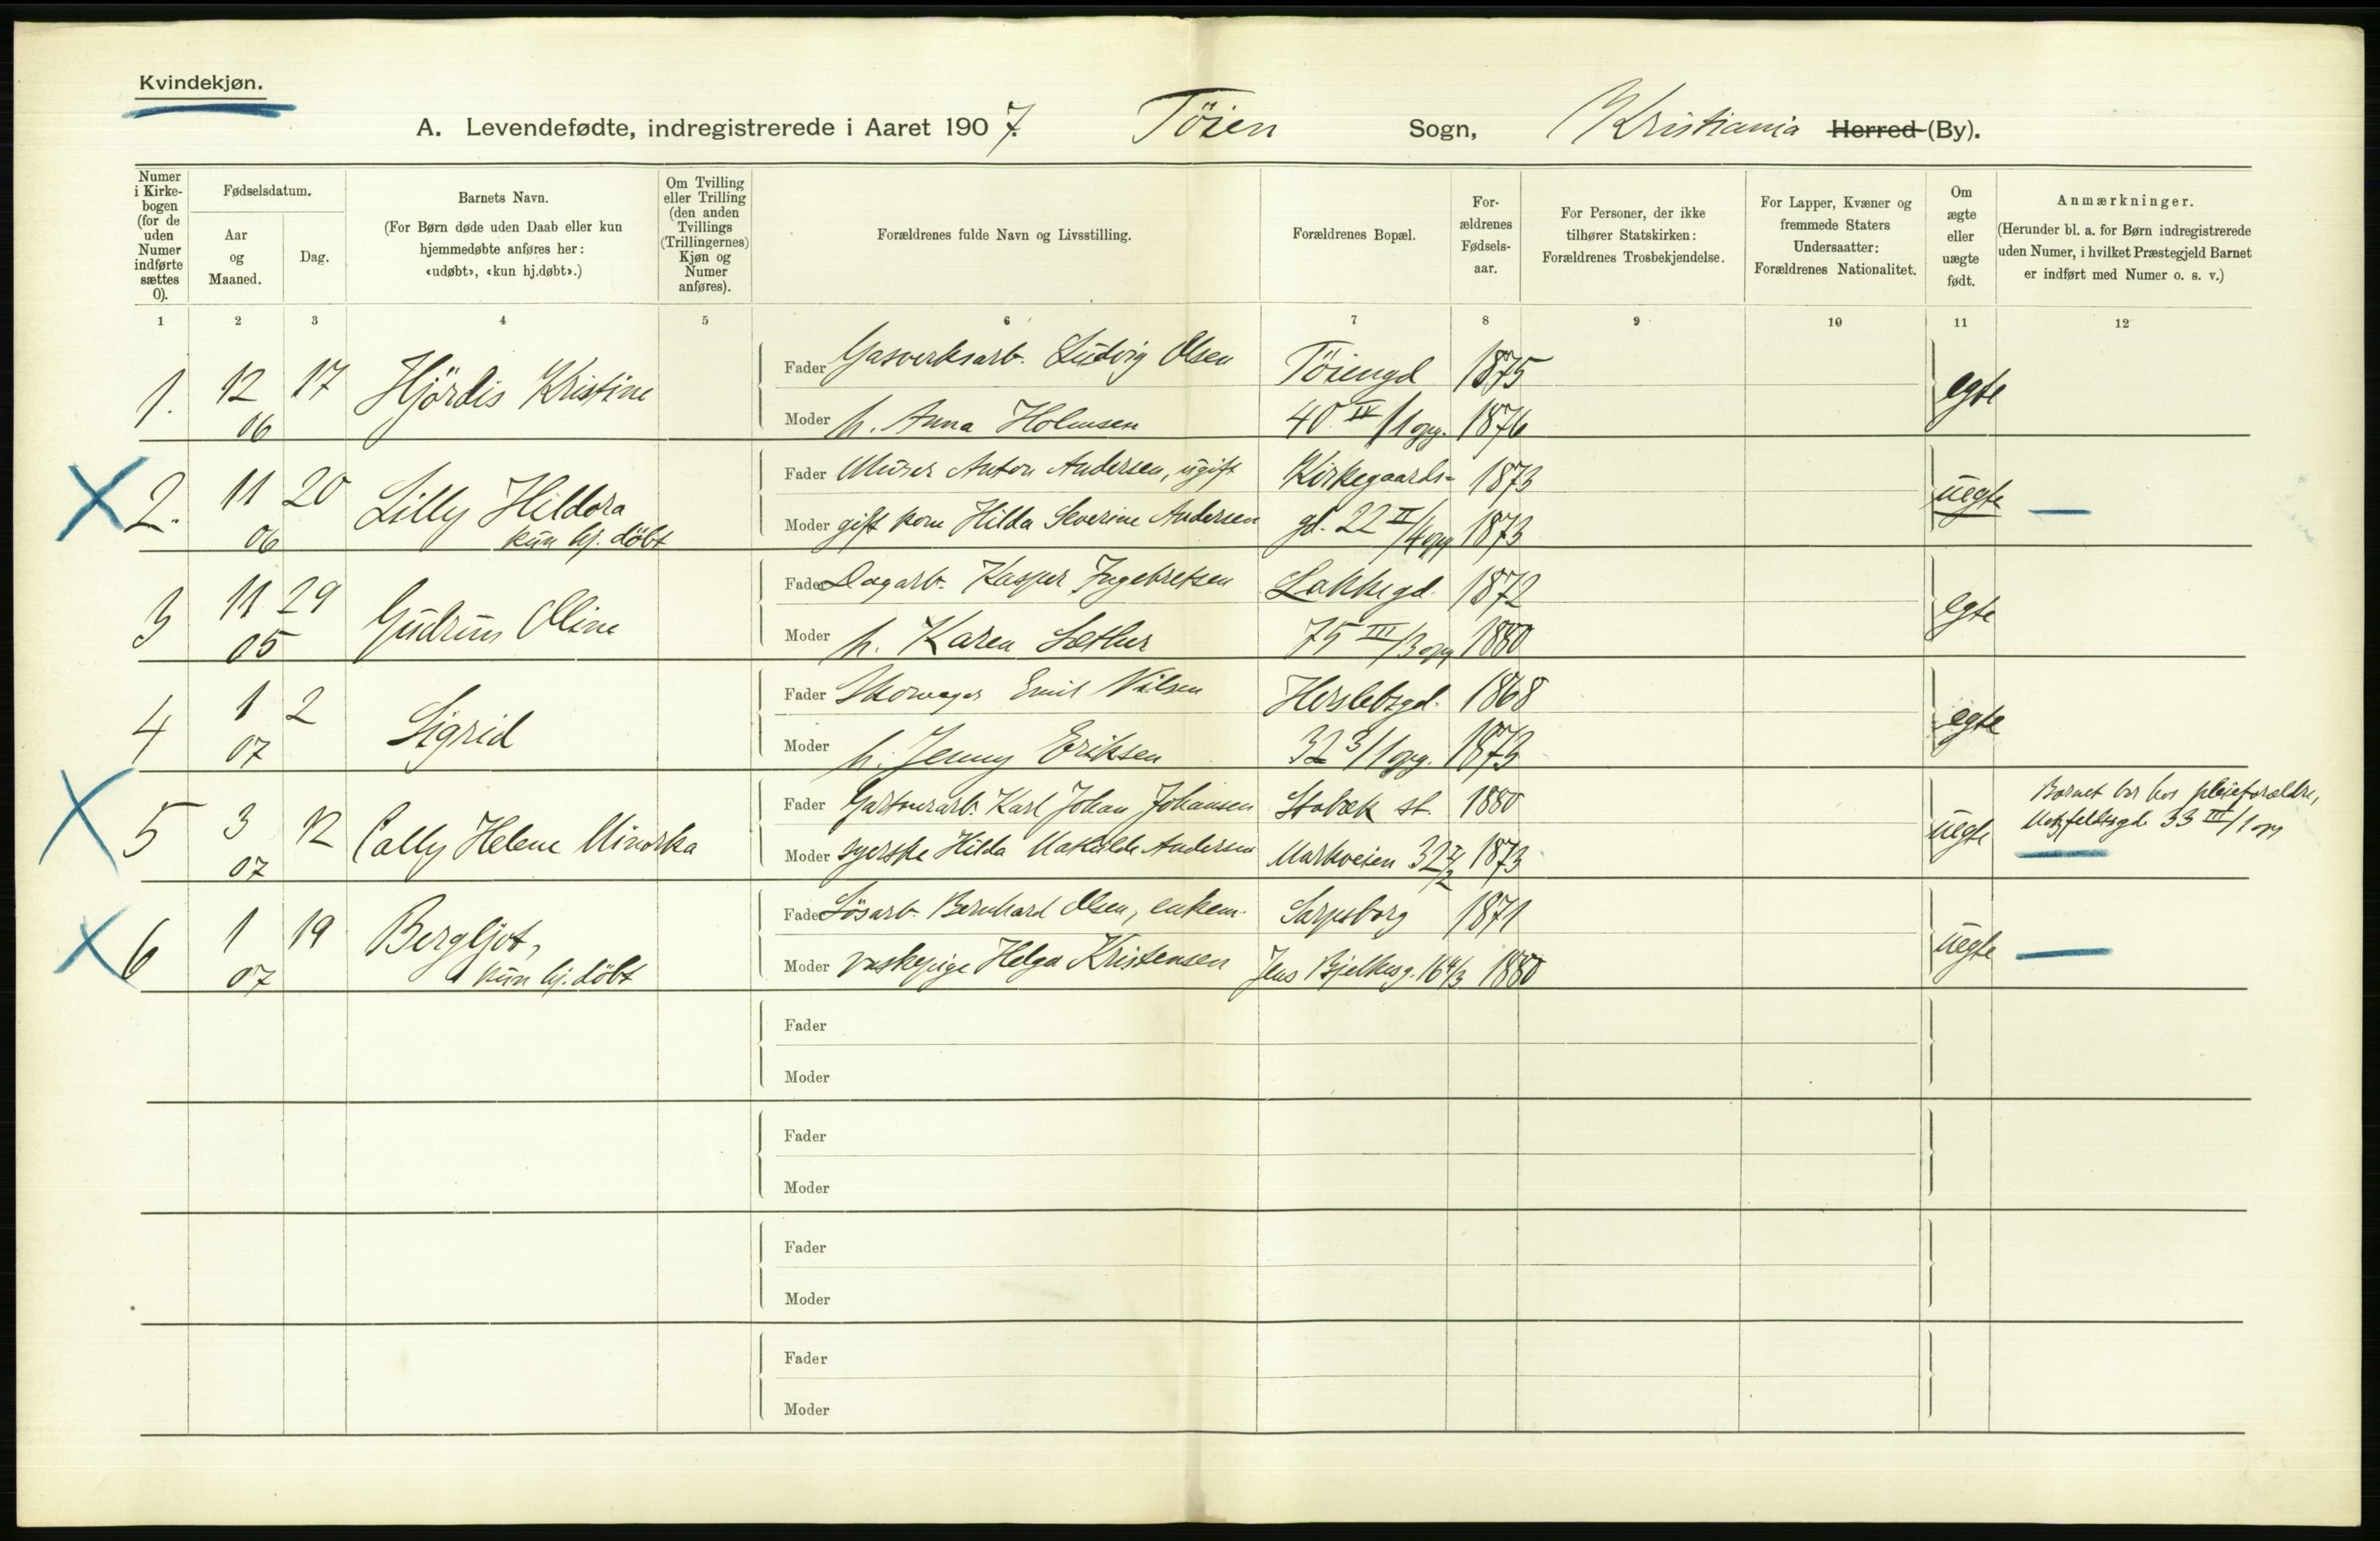 Kvindekjøn.
A. Levendefødte, indregistrerede i Aaret 1907. Töien Sogn, Kristiania Herred (By).
Numer i Kirkebogen (for de uden Numer indførte sættes 0).
Fødselsdatum.
Aar og Maaned.
Dag.
Barnets Navn.
(For Børn døde uden Daab eller kun hjemmedøbte anføres her: «udøbt», «kun hj.døbt».)
Om Tvilling eller Trilling (den anden Tvillings (Trillingernes) Kjøn og Numer anføres).
Forældrenes fulde Navn og Livsstilling.
Forældrenes Bopæl.
Forældrenes Fødselsaar.
For Personer, der ikke tilhører Statskirken: Forældrenes Trosbekjendelse.
For Lapper, Kvæner og fremmede Staters Undersaatter: Forældrenes Nationalitet.
Om ægte eller uægte født.
Anmærkninger.
(Herunder bl. a. for Børn indregistrerede uden Numer, i hvilket Præstegjeld Barnet er indført med Numer o. s. v.)
1 2 3 4 5 6 7 8 9 10 11 12
1. 12 06 17 Hjördis Kristine
Fader Gasverksarb. Ludvig Olsen Töiengd 1875
Moder h. Anna Holmsen 40 IV/1 opg. 1876 egte
2. 11 06 20 Lilly Hildora kun hj. döbt
Fader Murer Anton Andersen, ugift Kirkegaards- 1873
Moder gift kone Hilda Severine Andersen gd. 22 II/4 opg 1873 uegte —
3 11 05 29 Gudrun Oline
Fader Dagarb. Kasper Ingebretsen Lakkegd. 1872
Moder h. Karen Sæther 75 III/3 opg 1880 egte
4 1 07 2 Sigrid
Fader Emil Nilsen Herslebsgd. 1868
Moder h. Jenny Eriksen 32 3/1 opg. 1873 egte
5 3 07 12 Cally Helene Minorka
Fader Gartnerarb. Karl Johan Johansen Stabæk st. 1880
Moder syerske Hilda Mathilde Andersen Markveien 32 1873 uegte
Barnet bor hos pleieforældre,
33 III/1 opg
6 1 07 19 Bergljot, kun hj. döbt
Fader Løsarb. Bernhard Olsen, enkem. Sarpsborg 1871
Moder vaskepige Helga Kristensen Jens Bjelkesg. 16 4/3 1880 uegte —
Fader
Moder
Fader
Moder
Fader
Moder
Fader
Moder